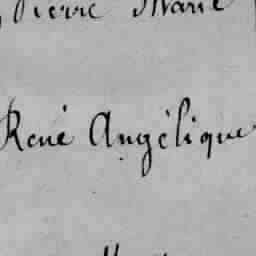 Pierre Marie
René Angélique